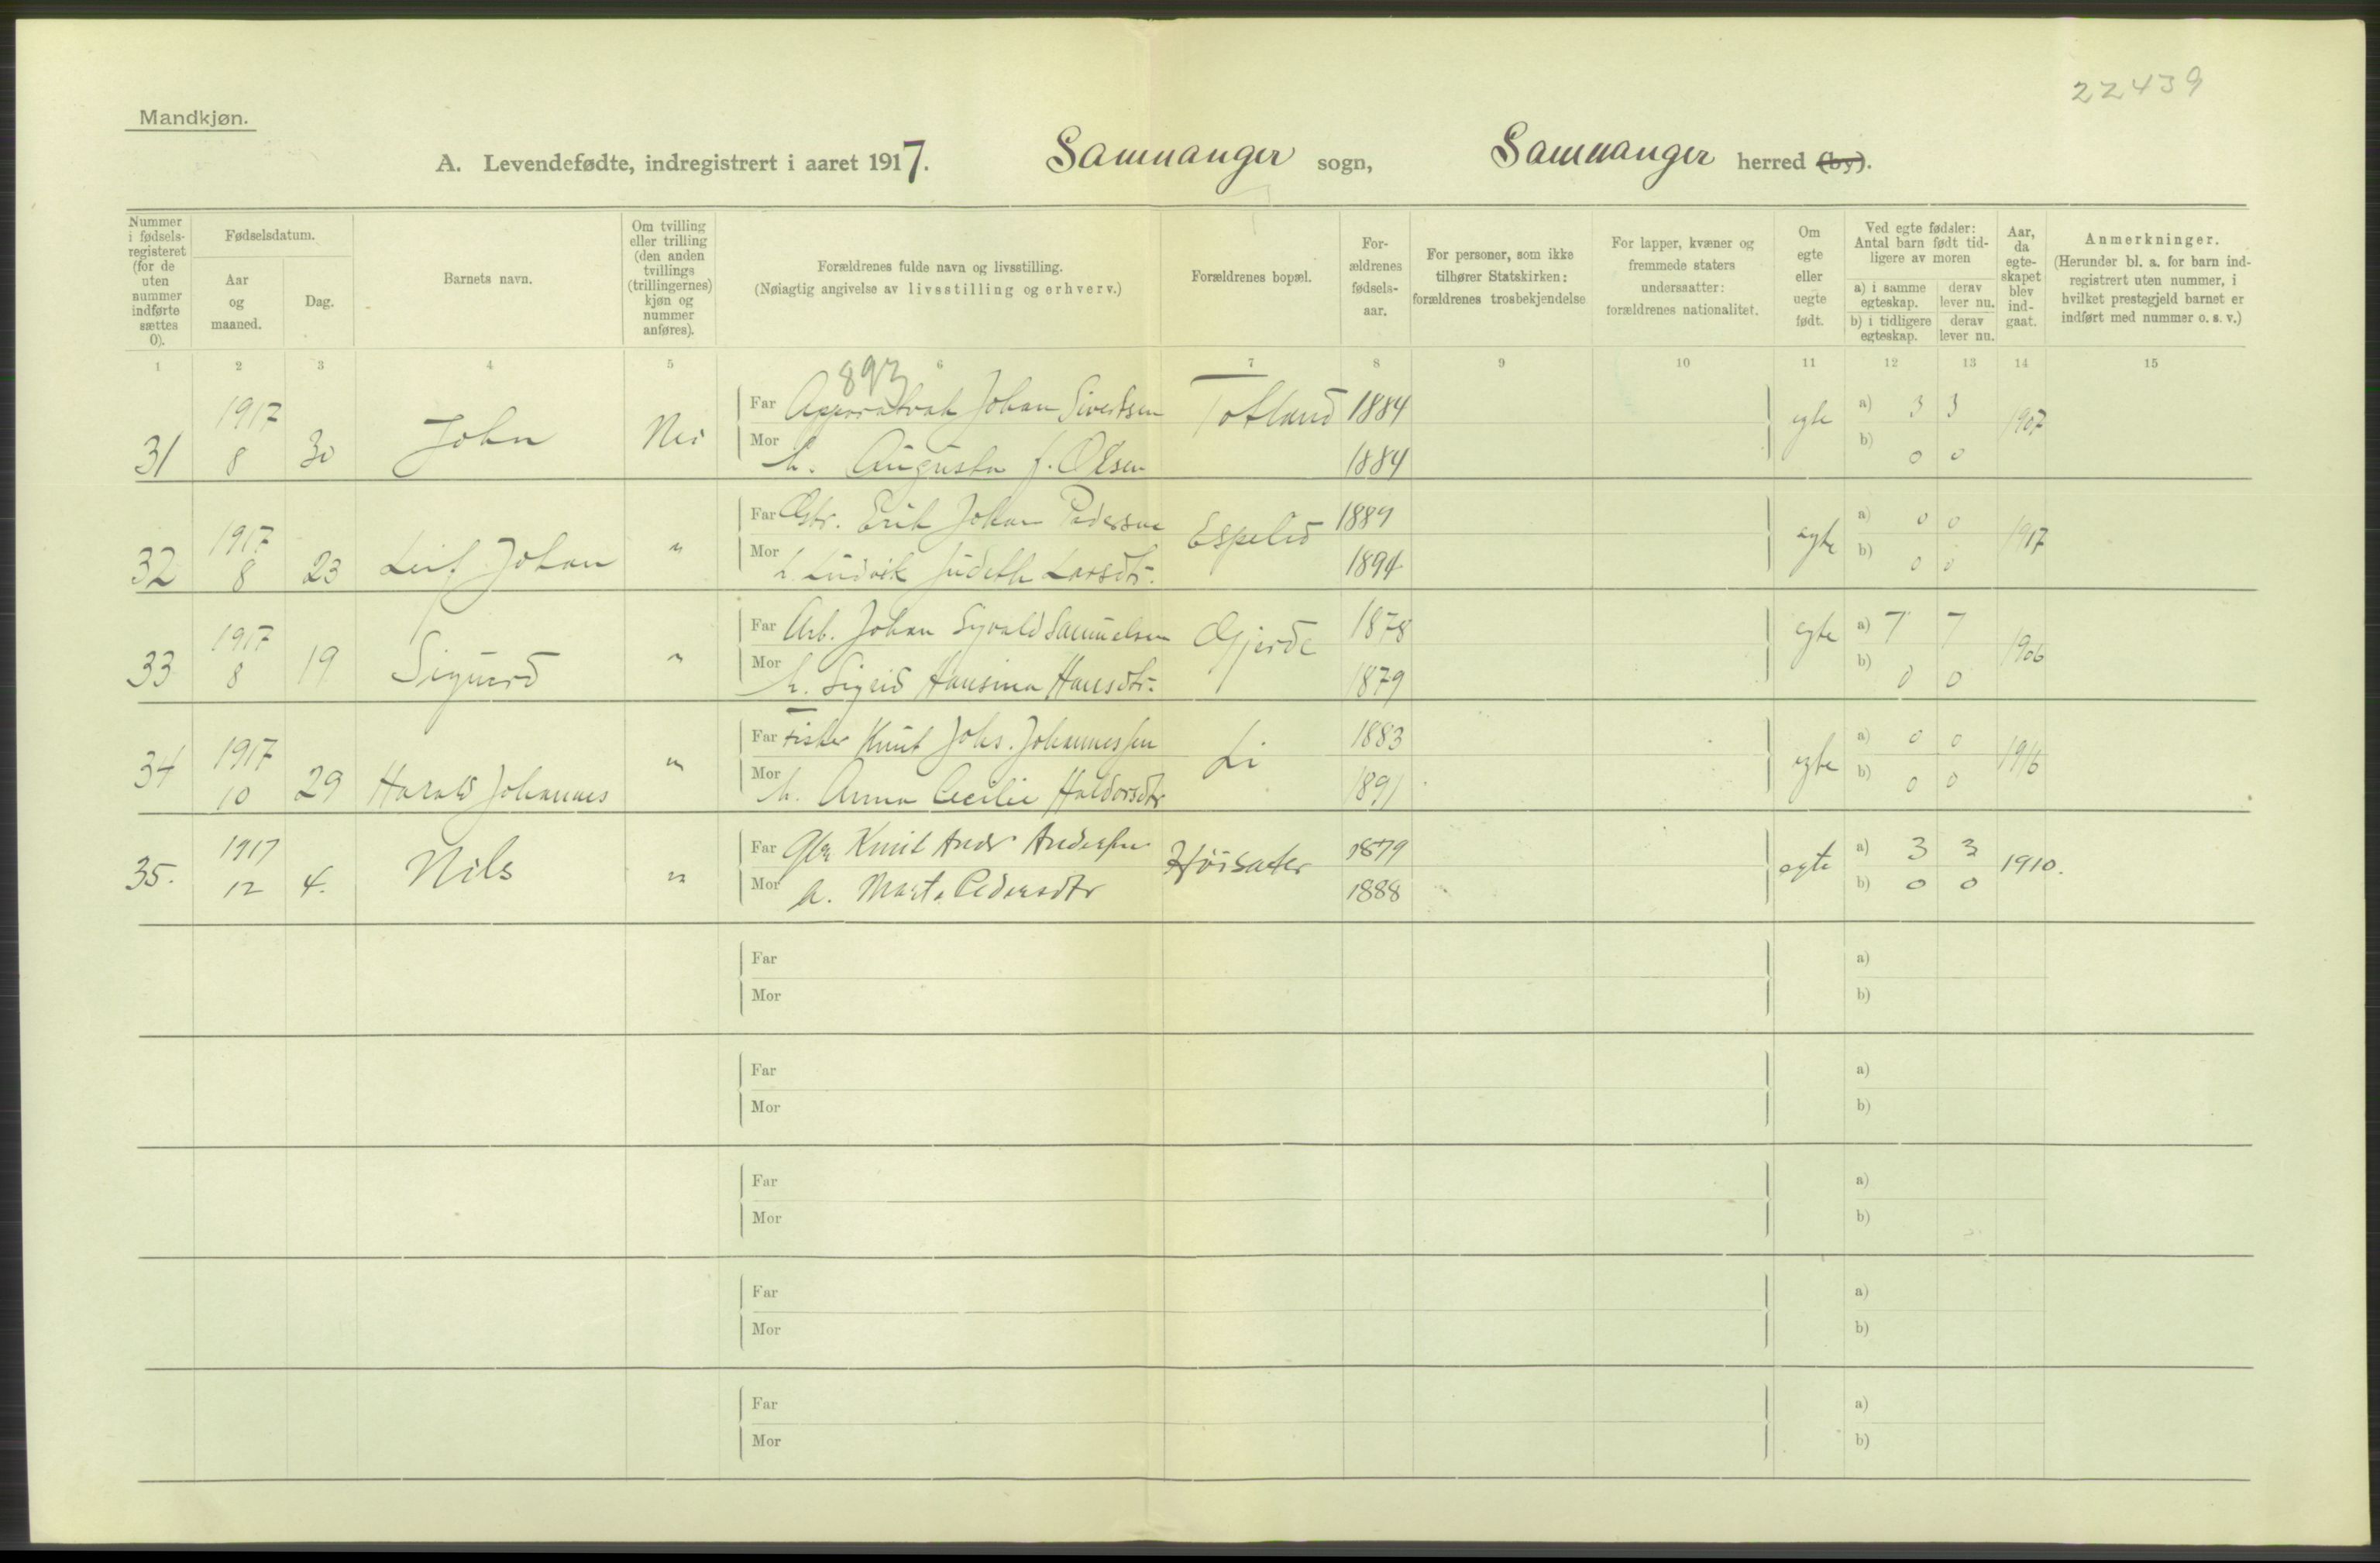 22439
Mandkjøn.
A. Levendefødte, indregistrert i aaret 1917. Samnanger sogn, Samnanger herred (by).
Nummer i fødsels-registeret (for de uten nummer indførte sættes 0).
Fødselsdatum.
Aar og maaned.
Dag.
Barnets navn.
Om tvilling eller trilling (den anden tvillings (trillingernes) kjøn og nummer anføres).
Forældrenes fulde navn og livsstilling.
(Nøiagtig angivelse av livsstilling og erhverv.)
Forældrenes bopæl.
For-ældrenes fødsels-aar.
For personer, som ikke tilhører Statskirken: forældrenes trosbekjendelse
For lapper, kvæner og fremmede staters undersaatter: forældrenes nationalitet.
Om egte eller uegte født.
Ved egte fødsler: Antal barn født tid-ligere av moren
a) i samme egteskap.
derav lever nu.
b) i tidligere egteskap.
derav lever nu.
Aar, da egte-skapet blev ind-gaat.
Anmerkninger.
(Herunder bl. a. for barn ind-registrert uten nummer, i hvilket prestegjeld barnet er indført med nummer o. s. v.)
1 2 3 4 5 6 7 8 9 10 11 12 13 14 15
893
31 1917 8 30 John Nei
Far Johan Sivertsen Totland 1884 egte a) 3 3 1907
Mor h. Augusta f. Olsen 1884 b) 0 0
32 1917 8 23 Leif Johan "
Far Gbr. Erik Johan Pedersen Espelid 1889 egte a) 0 0 1917
Mor h. Ludvik Judeth Larsdtr. 1894 b) 0 0
33 1917 8 19 Sigurd "
Far Arb. Johan Syvald Samuelsen Gjerde 1878 egte a) 7 7 1906
Mor h. Sigrid Hansina Hansdtr. 1879 b) 0 0
34 1917 10 29 Harald Johannes "
Far Fisker Knut Johs. Johannessen Li 1883 egte a) 0 0 1916
Mor h. Anna Cecilie Haldorsdtr 1891 b) 0 0
35. 1917 12 4. Nils "
Far Gbr Knut Andr Anderssen Höisæter 1879 egte a) 3 3 1910.
Mor h. Marta Pedersdtr 1888 b) 0 0
Far a)
Mor b)
Far a)
Mor b)
Far a)
Mor b)
Far a)
Mor b)
Far a)
Mor b)